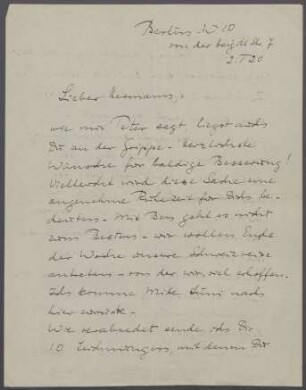 Berlin W 10
von der Heydt Str. 7
2. V 20
Lieber Neumann,
wie mir Peter sagt liegst auch
Du an der Grippe. Herzlichste
Wünsche für baldige Besserung!
Vielleicht wird diese Sache eine
angenehme Ruhezeit für Dich be-
deuten. Mir geht es nicht
zum Besten – wir wollen Ende
der Woche unsere Schweizreise
antreten – von der wir viel erhoffen.
Ich komme Mitte Juni nach
hier zurück.
Wie verabredet sende ich Dir
10 Zeichnungen, mit denen Du